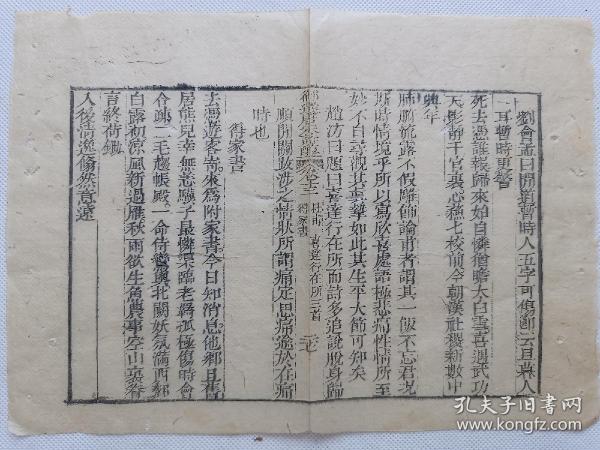 劉會孟曰間道暫時人五字可傷卽云且與人
一耳暫時更警
死去憑誰報歸來始自憐猶瞻太白雪喜遇武功
天影靜千官裏心蘇七校前今朝漢社稷新數中
興年
肺腑流露不假雕飾論甫者謂其一飯不忘君況
斯時情境乎所以寫欣喜處語極悲痛性情所至
妙不自尋觀其如此其生平大節可知矣
御選唐宋詩醇 卷十二 杜甫 喜達行在所三首 得家書
趙汸曰題曰喜達行在所而詩多追說脫身歸
順間關跋涉之情狀所謂痛定思痛愈於在痛
時也
得家書
去憑遊客寄來爲附家書今日知消息他鄉且舊
居熊兒幸無恙驥子最憐渠臨老羈孤極傷時會
合踈二毛趨帳殿一命侍鸞輿北闕妖氛滿西郊
白露初涼風新過雁秋雨欲生魚農事空山裏眷
言終荷鋤
人後清逸翛然意遠
孔夫子旧书网
www.kongfz.com